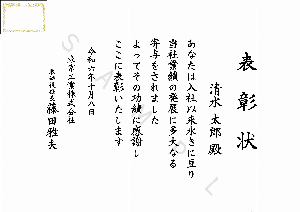 表彰状
清水 太郎 殿
あなたは入社以来永きに亘り
当社業績の発展に多大なる
寄与をされました
よってその功績に感謝し
ここに表彰いたします
令和六年十月八日
株式会社
藤田雅夫
SAMPLE